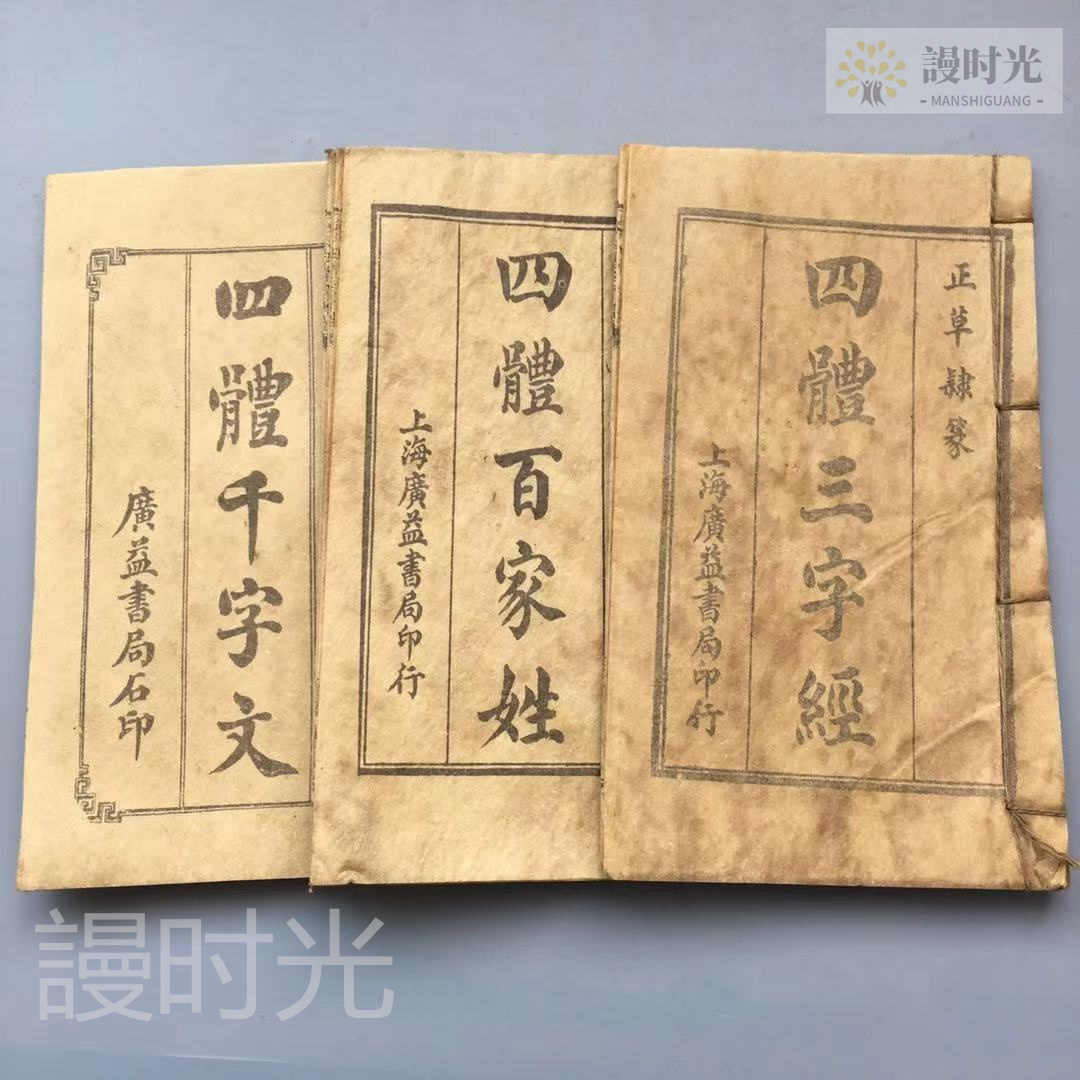 謾时光
- MANSHIGUANG -
正草隸篆
四體三字經
上海廣益書局印行
四體百家姓
上海廣益書局印行
四體千字文
廣益書局石印
謾时光